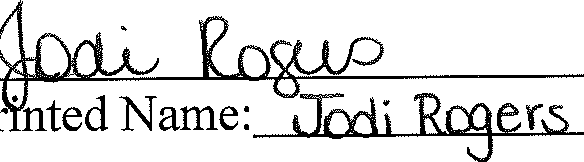 Jodi Rogers
rinted Name: Jodi Rogers